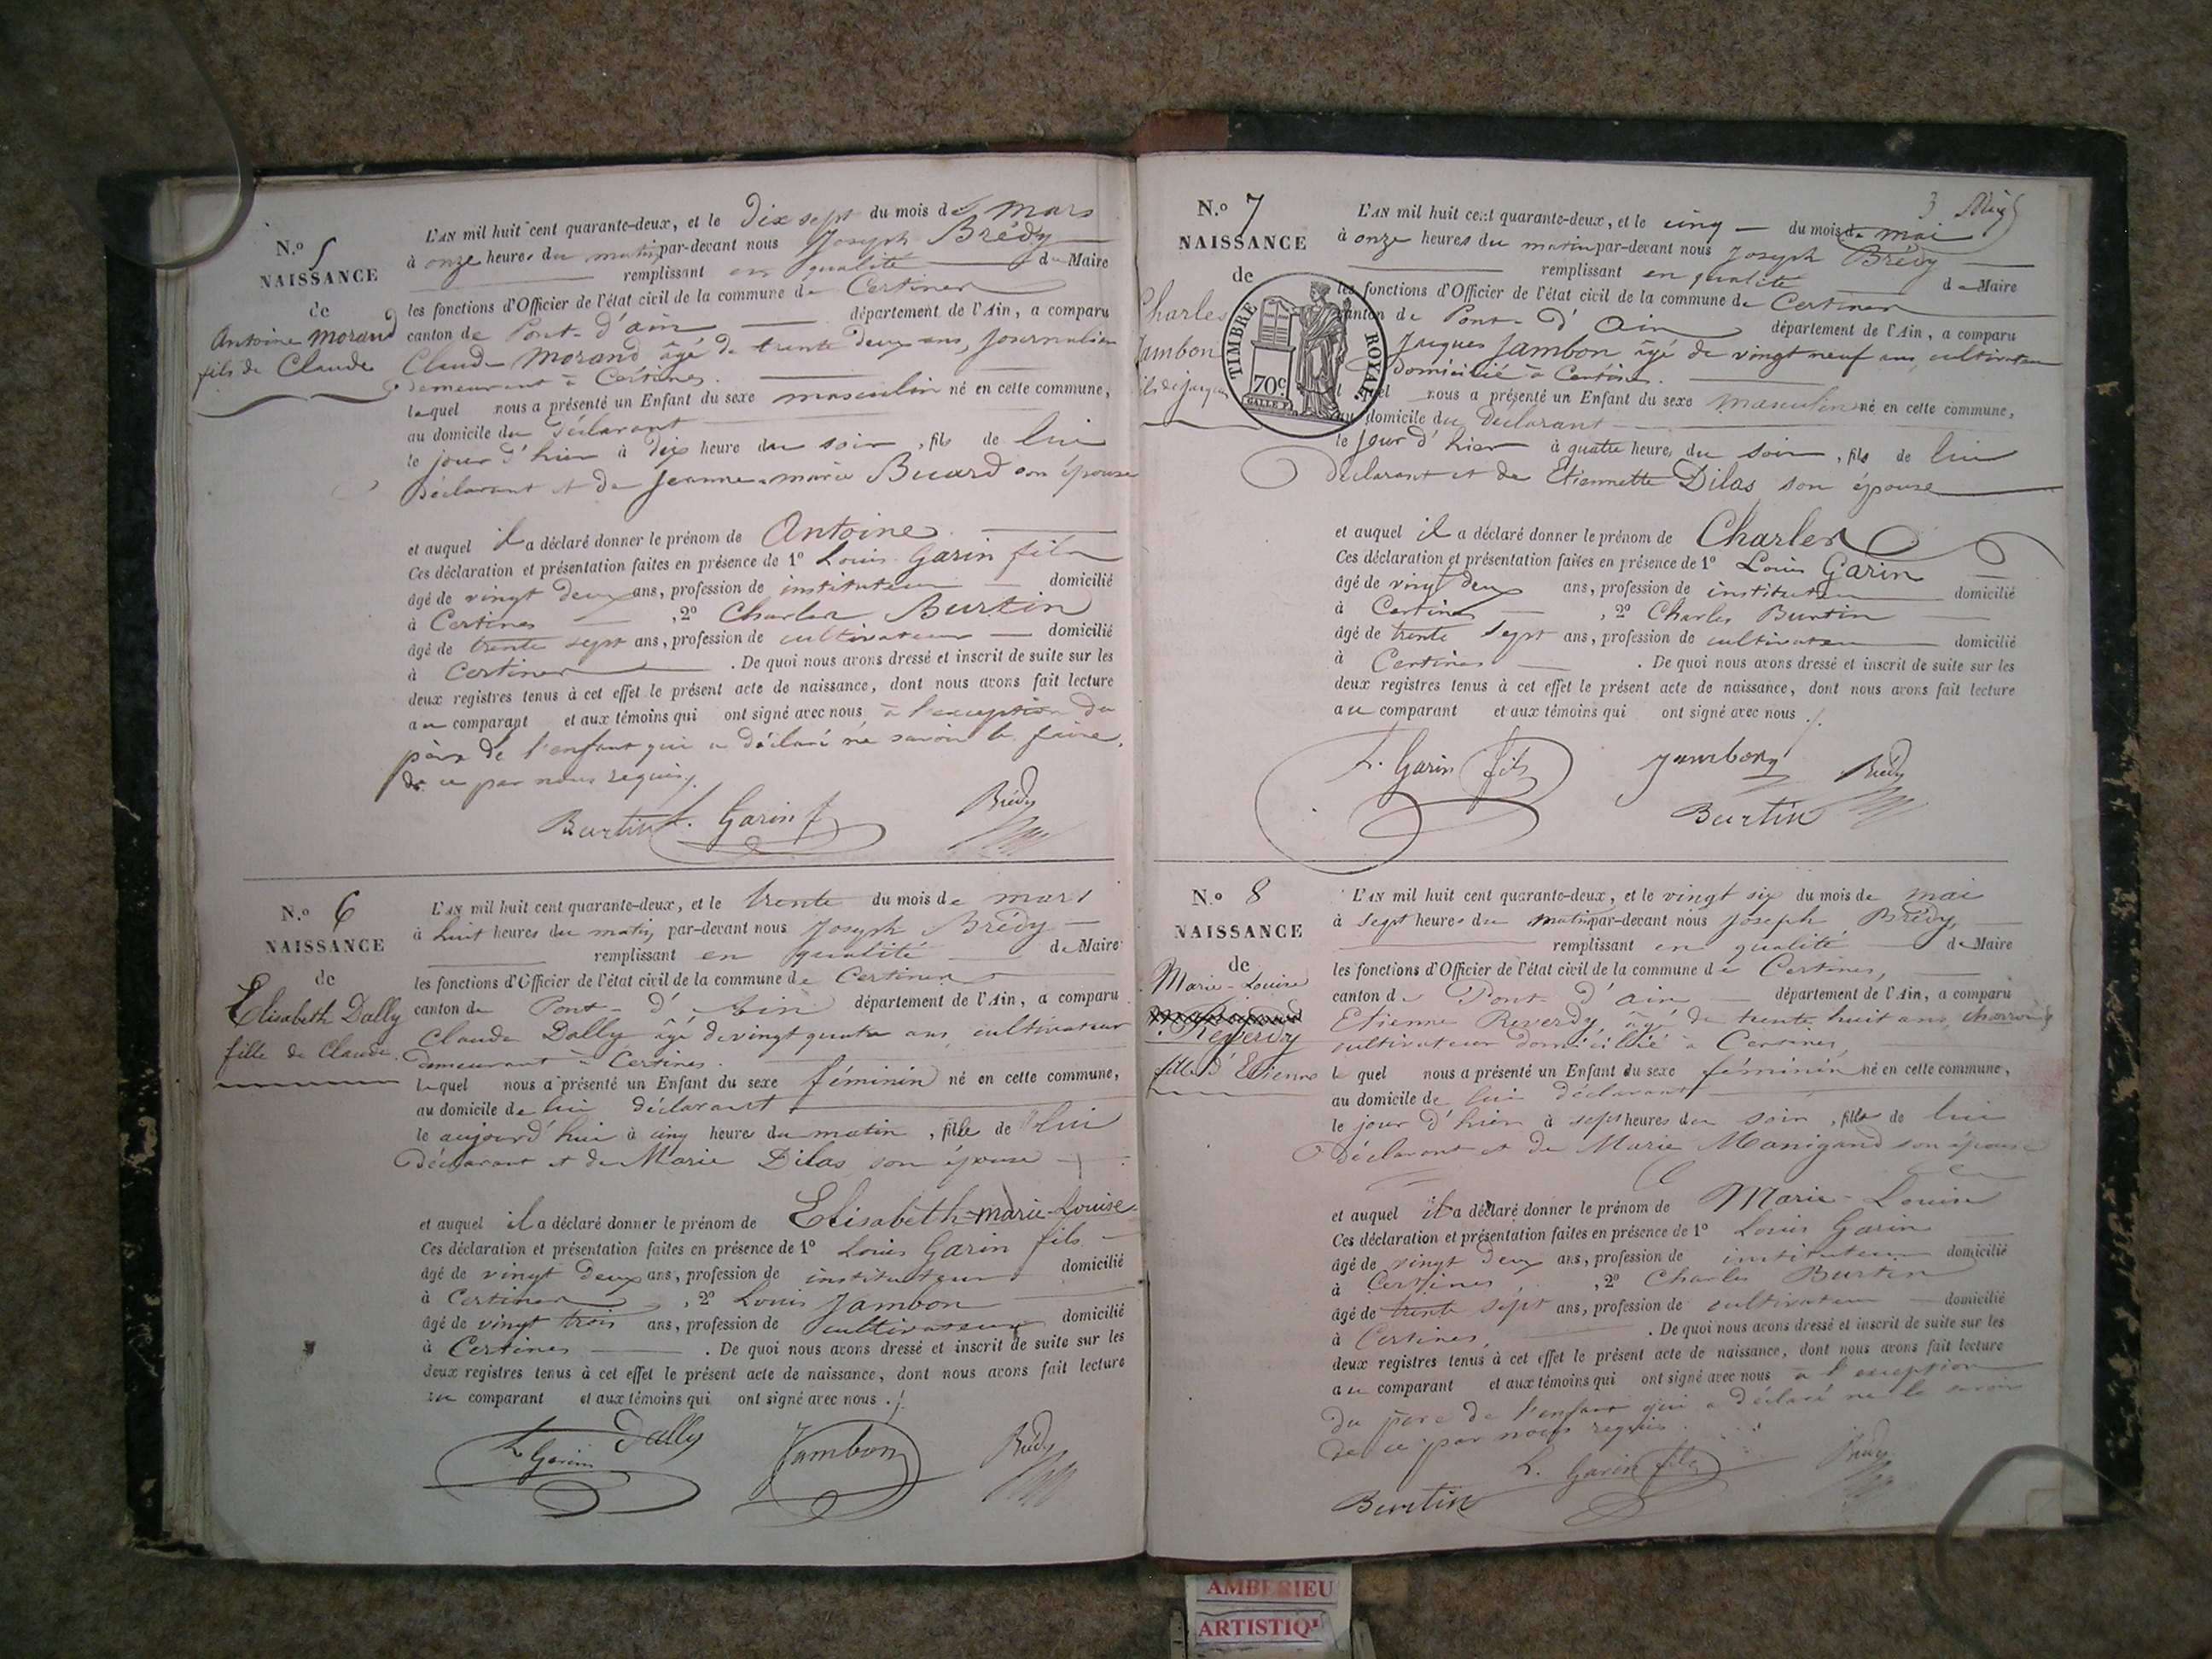 N.o 5
NAISSANCE
de
Antoine Morand
fils de Claude
L'AN mil huit cent quarante-deux, et le dix sept du mois de mars
à onze heures du matin par-devant nous Joseph Brédy
remplissant en qualité de Maire
les fonctions d'Officier de l'état civil de la commune de Certines
canton de Pont-d'ain département de l'Ain, a comparu
Claude Morand âgé de trente deux ans, journalier
demeurant à Certines.
lequel nous a présenté un Enfant du sexe masculin né en cette commune,
au domicile du déclarant
le jour d'hier à dix heure du soir, fils de lui
déclarant et de Jeanne-marie Buard son épouse
et auquel il a déclaré donner le prénom de Antoine
Ces déclaration et présentation faites en présence de 1º Louis Garin fils
âgé de vingt deux ans, profession de instituteur domicilié
à Certines, 2º Charles Burtin
âgé de trente sept ans, profession de cultivateur domicilié
à Certines. De quoi nous avons dressé et inscrit de suite sur les
deux registres tenus à cet effet le présent acte de naissance, dont nous avons fait lecture
au comparant et aux témoins qui ont signé avec nous, à l'exception du
père de l'enfant qui a déclaré ne savoir le faire,
de ce par nous requis.
Burtin L. Garin f Brédy
N.o 6
NAISSANCE
de
Elisabeth Dally
fille de Claude.
L'AN mil huit cent quarante-deux, et le trente du mois de mars
à huit heures du matin par-devant nous Joseph Brédy
remplissant en qualité de Maire
les fonctions d'Officier de l'état civil de la commune de Certines
canton de Pont-d'Ain département de l'Ain, a comparu
Claude Dally âgé de vingt quatre ans, cultivateur
demeurant à Certines.
lequel nous a présenté un Enfant du sexe féminin né en cette commune,
au domicile de lui déclarant
le aujourd'hui à cinq heures du matin, fille de lui
déclarant et de Marie Dilas son épouse
et auquel il a déclaré donner le prénom de Elisabeth-marie-Louise
Ces déclaration et présentation faites en présence de 1º Louis Garin fils
âgé de vingt deux ans, profession de instituteur domicilié
à Certines, 2º Louis Jambon
âgé de vingt trois ans, profession de cultivateur domicilié
à Certines. De quoi nous avons dressé et inscrit de suite sur les
deux registres tenus à cet effet le présent acte de naissance, dont nous avons fait lecture
au comparant et aux témoins qui ont signé avec nous ./.
L Garin Dally Jambon Brédy
3
N.o 7
NAISSANCE
de
Charles
Jambon
fils de jacques
TIMBRE ROYAL
70c
L'AN mil huit cent quarante-deux, et le cinq du mois de mai
à onze heures du matin par-devant nous Joseph Brédy
remplissant en qualité de Maire
les fonctions d'Officier de l'état civil de la commune de Certines
canton de Pont-d'Ain département de l'Ain, a comparu
Jacques Jambon âgé de vingt neuf ans, cultivateur
domicilié à Certines.
lequel nous a présenté un Enfant du sexe masculin né en cette commune,
au domicile du déclarant
le jour d'hier à quatre heures du soir, fils de lui
déclarant et de Etiennette Dilas son épouse
et auquel il a déclaré donner le prénom de Charles
Ces déclaration et présentation faites en présence de 1º Louis Garin
âgé de vingt deux ans, profession de instituteur domicilié
à Certines, 2º Charles Burtin
âgé de trente sept ans, profession de cultivateur domicilié
à Certines. De quoi nous avons dressé et inscrit de suite sur les
deux registres tenus à cet effet le présent acte de naissance, dont nous avons fait lecture
au comparant et aux témoins qui ont signé avec nous ./.
L. Garin fils Jambon Brédy
Burtin
N.o 8
NAISSANCE
de
Marie-Louise
Reverdy
fille d'Etienne
L'AN mil huit cent quarante-deux, et le vingt six du mois de mai
à sept heures du matin par-devant nous Joseph Brédy,
remplissant en qualité de Maire
les fonctions d'Officier de l'état civil de la commune de Certines,
canton de Pont d'ain département de l'Ain, a comparu
Etienne Reverdy âgé de trente huit ans,
cultivateur domicilié à Certines,
lequel nous a présenté un Enfant du sexe féminin né en cette commune,
au domicile de lui déclarant
le jour d'hier à sept heures du soir, fille de lui
déclarant et de Marie Manigand son épouse
et auquel il a déclaré donner le prénom de Marie-Louise
Ces déclaration et présentation faites en présence de 1º Louis Garin
âgé de vingt deux ans, profession de instituteur domicilié
à Certines, 2º Charles Burtin
âgé de trente sept ans, profession de cultivateur domicilié
à Certines, . De quoi nous avons dressé et inscrit de suite sur les
deux registres tenus à cet effet le présent acte de naissance, dont nous avons fait lecture
au comparant et aux témoins qui ont signé avec nous à l'exception
du père de l'enfant qui a déclaré ne le savoir
de ce par nous requis.
L. Garin fils Brédy
Burtin
AMBERIEU
ARTISTIQ